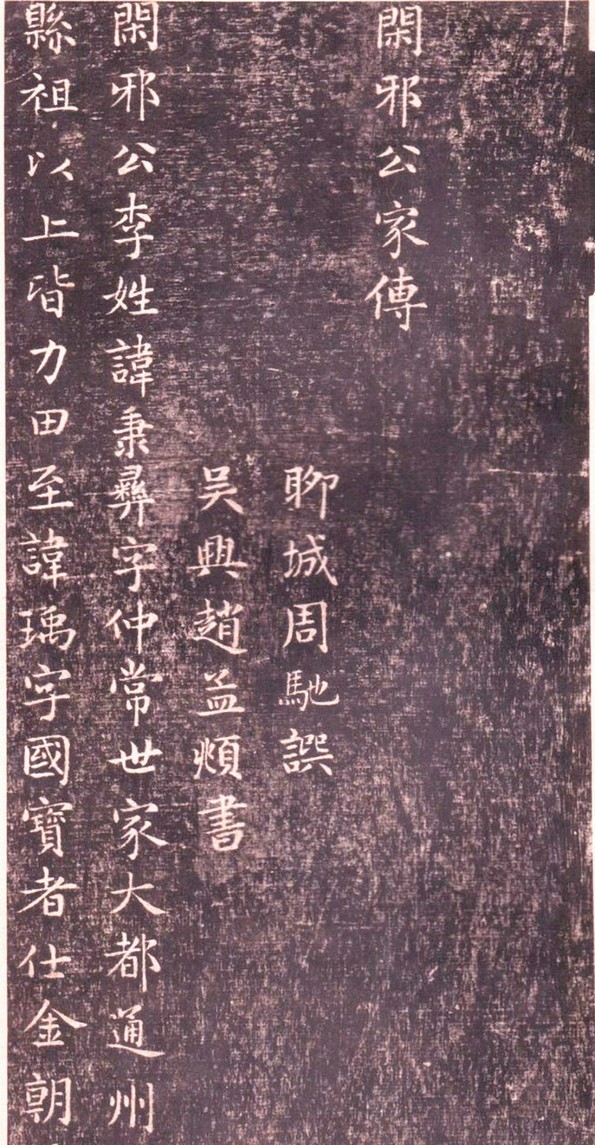 閑邪公家傳
聊城周馳譔
吳興趙孟頫書
閑邪公李姓諱秉彝字仲常世家大都通州
縣祖以上皆力田至諱瑀字國寶者仕金朝